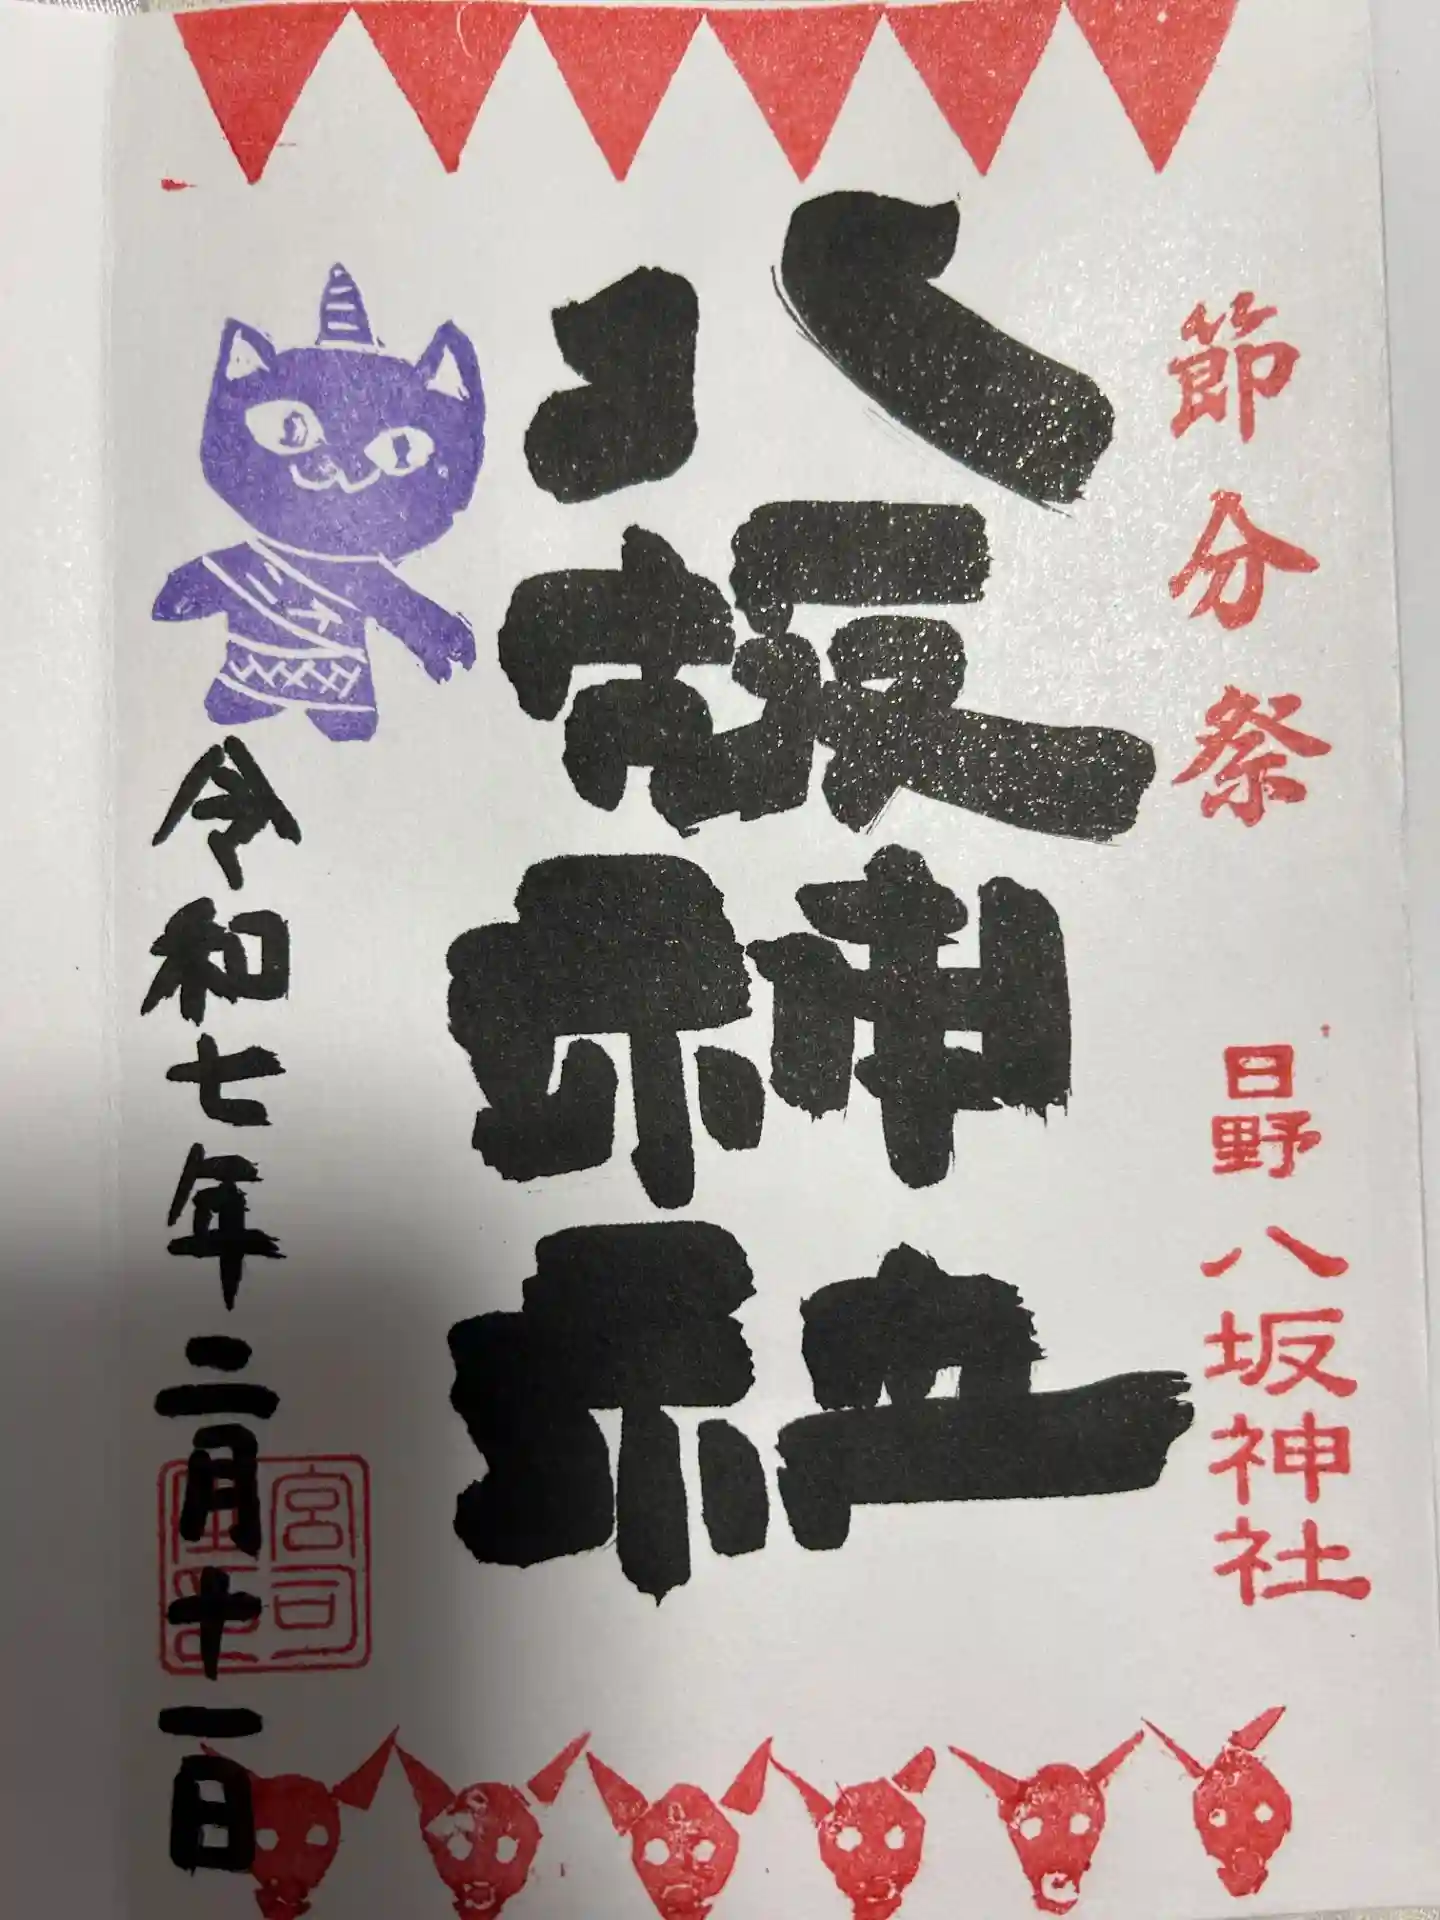 節分祭
日野八坂神社
八坂神社
令和七年二月十一日
宮司